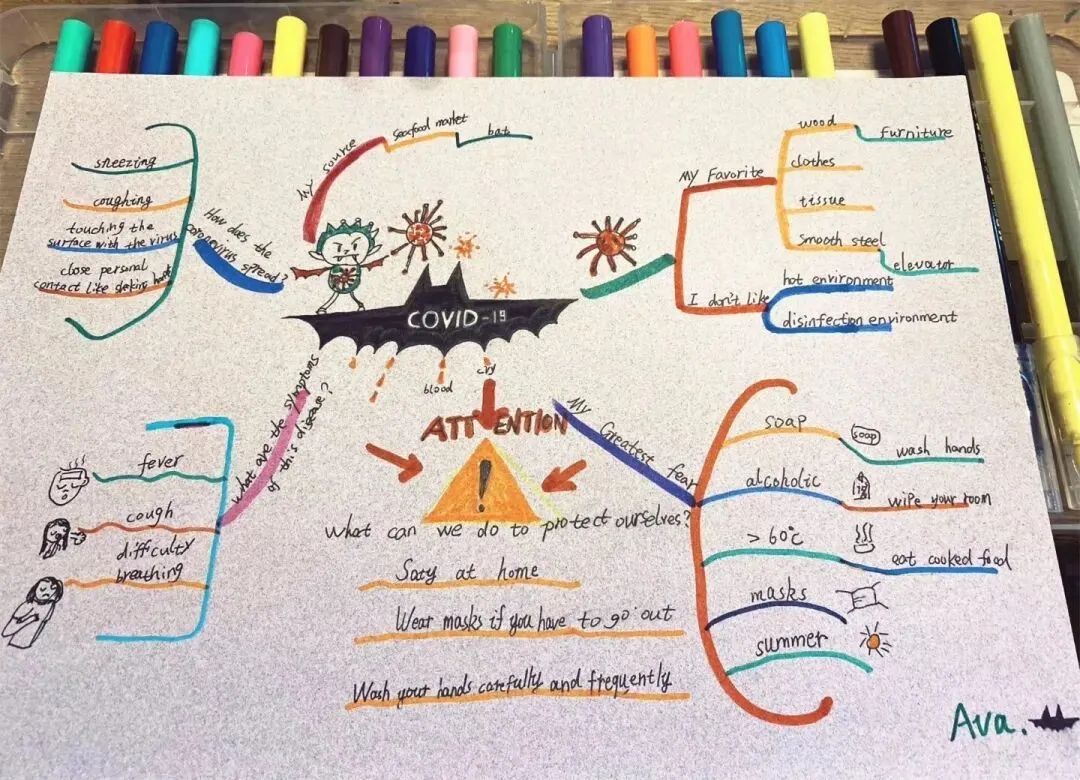 COVID-19
blood
cry
My source
Seafood market
bat
My Favorite
wood
furniture
clothes
tissue
smooth steel
elevator
I don't like
hot environment
disinfection environment
How does the
coronavirus spread?
sneezing
coughing
touching the
surface with the virus
close personal
contact like
What are the symptoms
of this disease?
fever
cough
difficulty
breathing
ATTENTION
!
What can we do to protect ourselves?
Stay at home
Wear masks if you have to go out
Wash your hands carefully and frequently
My Greatest fear
soap
soap
wash hands
alcoholic
wipe your room
>60℃
eat cooked food
masks
summer
Ava.